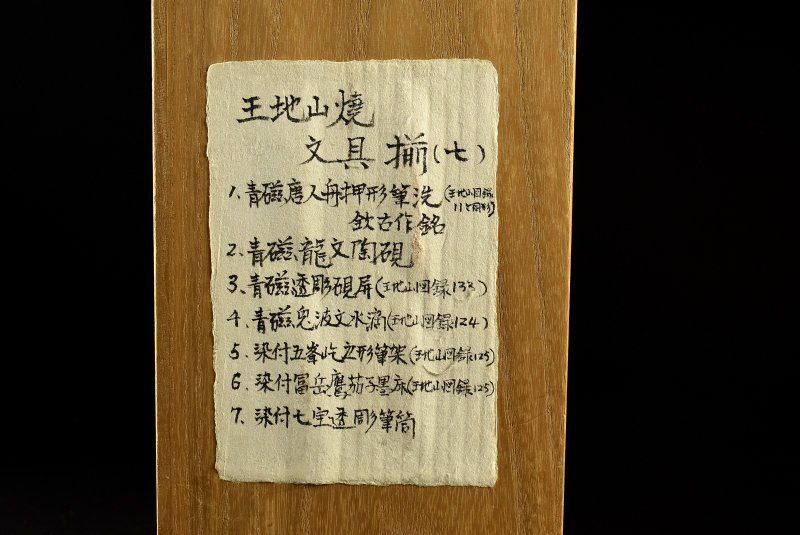 王地山燒
文具揃(七)
1、青磁唐人舟押形筆洗(王地山図録
117同形)
欽古作銘
2、青磁龍文陶硯
3、青磁透彫硯屏(王地山図録133)
4、青磁兎波文水滴(王地山図録124)
5、染付五峯屹立形筆架(王地山図録125)
6、染付冨岳鷹茄子墨床(王地山図録125)
7、染付七宝透彫筆筒